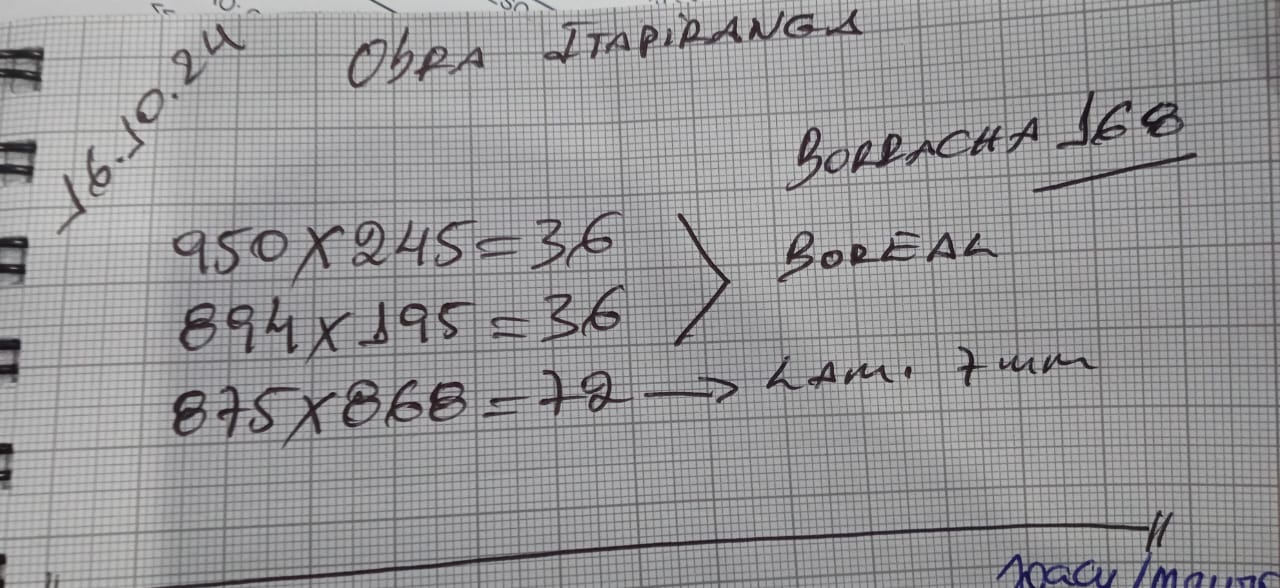 16.10.24
OBRA ITAPIRANGA
BORRACHA 168
950X245=36
BOREAL
894X195=36
875X868=72 → LAM. 7mm